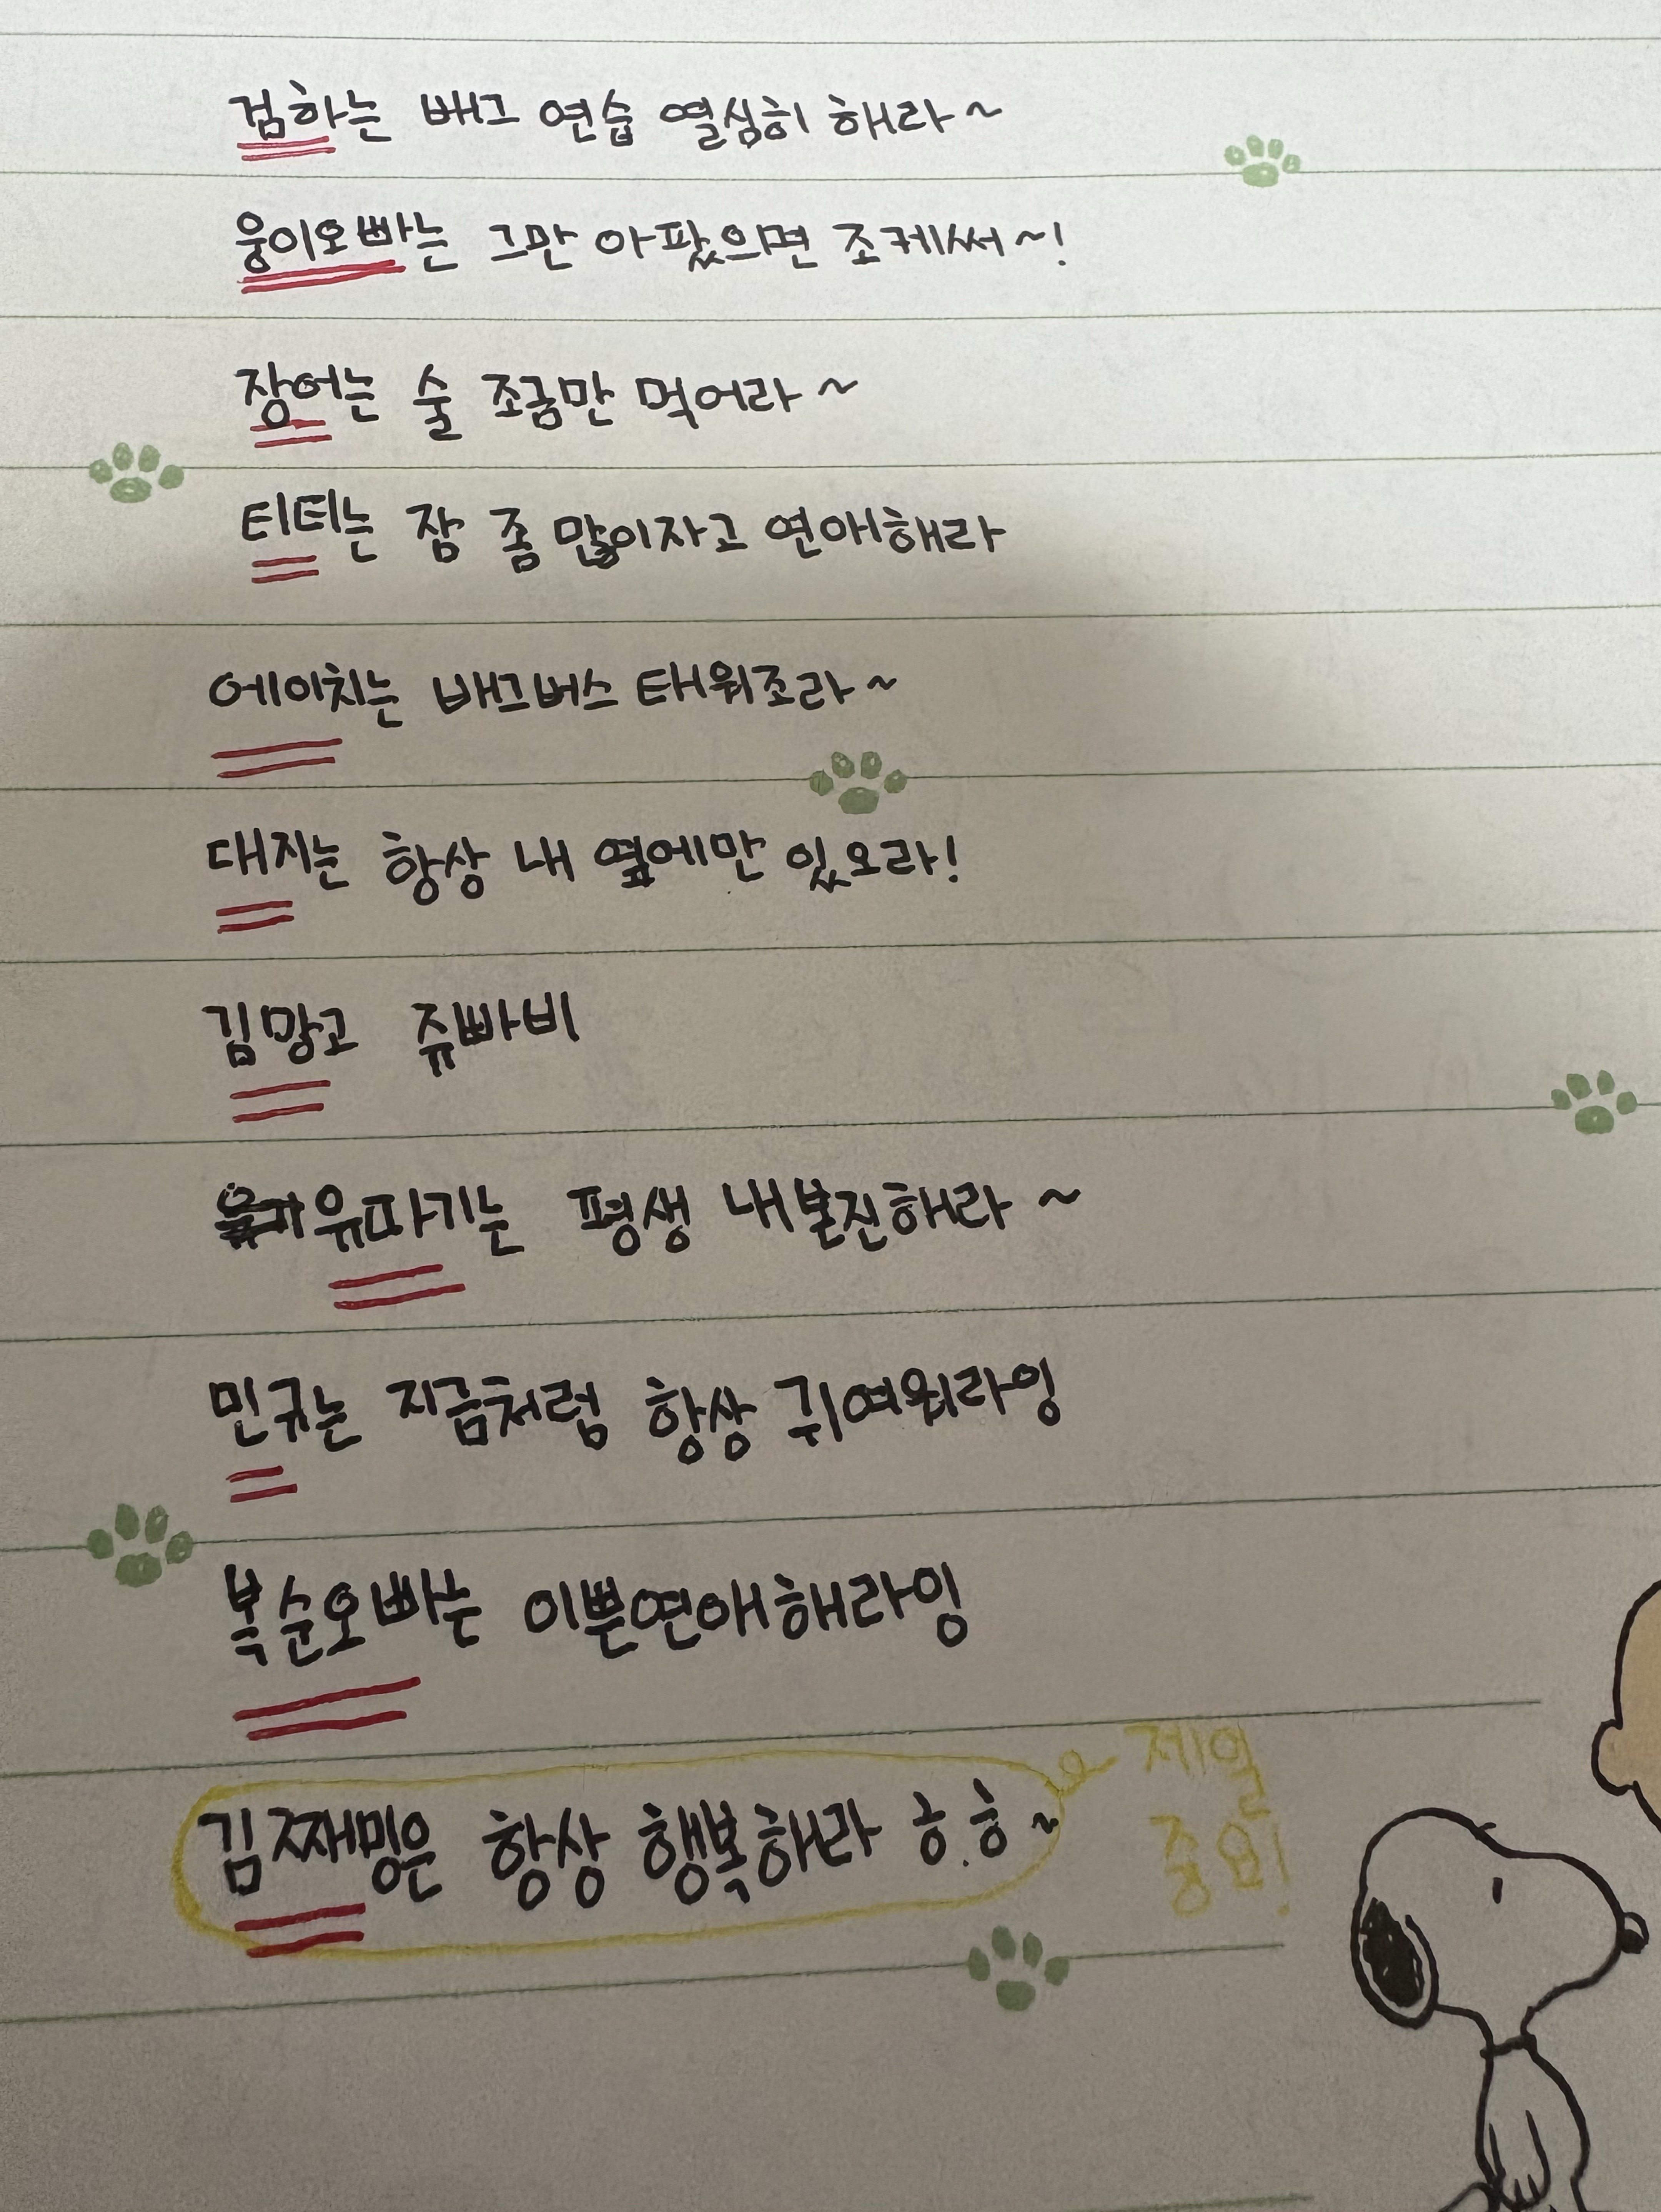 검하는 배그 연습 열심히 해라~
웅이오빠는 그만 아팠으면 조케써~!
장어는 술 조금만 먹어라~
티티는 잠 좀 많이자고 연애해라
에이치는 배그버스 태워조라~
대지는 항상 내 옆에만 있오라!
김망고 쥬빠비
유파기는 평생 내본진해라~
민규는 지금처럼 항상 귀여워라잉
복순오빠는 이쁜연애해라잉
김쨰밍은 항상 행복해라 ㅎ.ㅎ~
제일
중요!